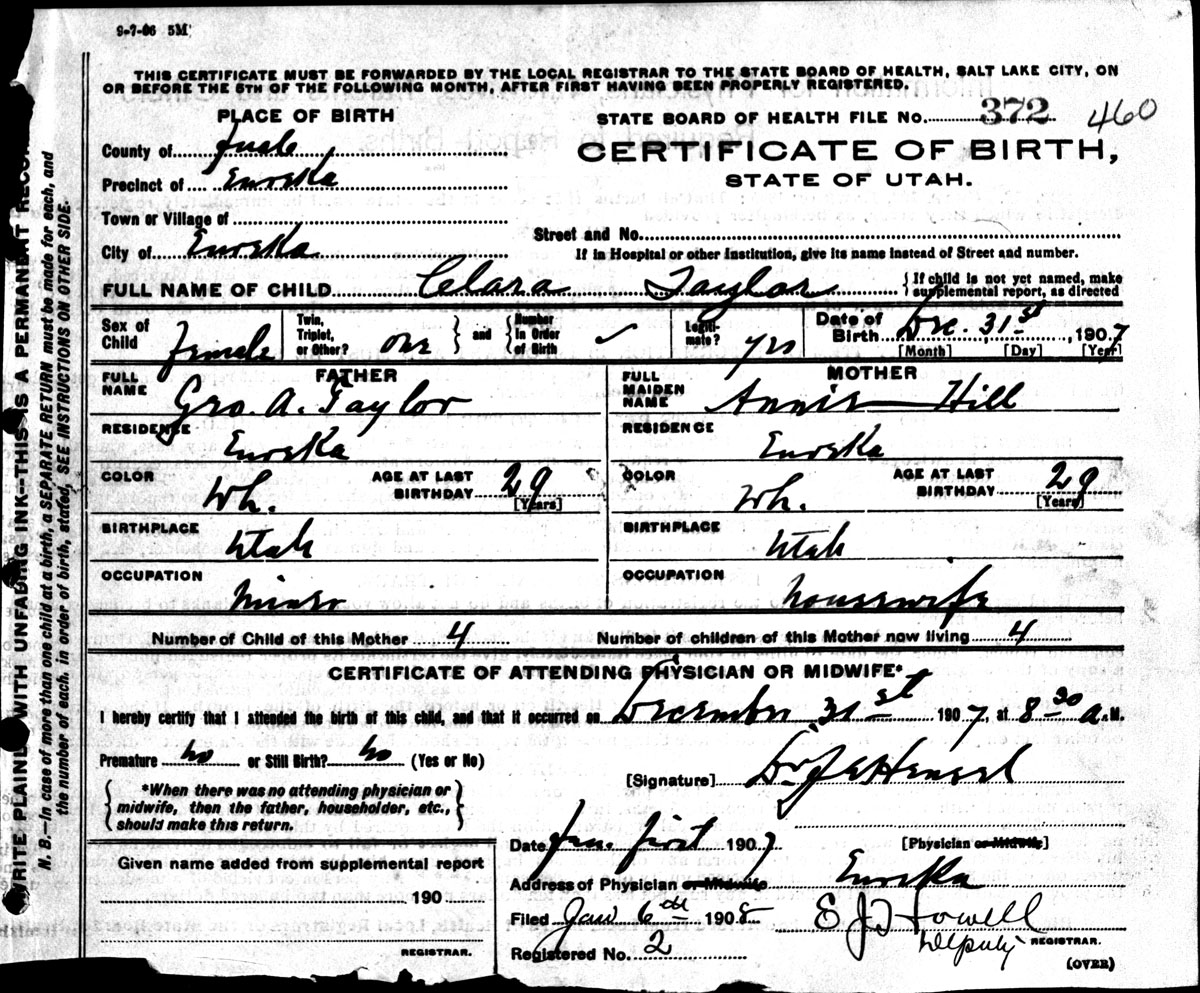 9-7-06 5M
THIS CERTIFICATE MUST BE FORWARDED BY THE LOCAL REGISTRAR TO THE STATE BOARD OF HEALTH, SALT LAKE CITY, ON
OR BEFORE THE 5TH OF THE FOLLOWING MONTH, AFTER FIRST HAVING BEEN PROPERLY REGISTERED.
PLACE OF BIRTH
STATE BOARD OF HEALTH FILE No. 372 460
County of Juab
CERTIFICATE OF BIRTH,
STATE OF UTAH.
Precinct of Eureka
Town or Village of
Street and No.
City of Eureka
If in Hospital or other Institution, give its name instead of Street and number.
FULL NAME OF CHILD Clara Taylor { If child is not yet named, make
supplemental report, as directed
Sex of Child Female
Twin, Triplet, or Other? one } and { Number In Order of Birth ✓
Legitimate? yes
Date of Birth Dec. 31st, 1907
[Month] [Day] [Year]
FATHER
FULL NAME Geo. A. Taylor
MOTHER
FULL MAIDEN NAME Annie Hill
RESIDENCE Eureka
RESIDENCE Eureka
COLOR Wh. AGE AT LAST BIRTHDAY 29 [Years]
COLOR Wh. AGE AT LAST BIRTHDAY 29 [Years]
BIRTHPLACE Utah
BIRTHPLACE Utah
OCCUPATION Miner
OCCUPATION housewife
Number of Child of this Mother 4 Number of children of this Mother now living 4
CERTIFICATE OF ATTENDING PHYSICIAN OR MIDWIFE*
I hereby certify that I attended the birth of this child, and that it occurred on December 31st 1907, at 8 30 a.M.
Premature no or Still Birth? no (Yes or No)
[Signature] Dr J E Hensel
{ *When there was no attending physician or
midwife, then the father, householder, etc.,
should make this return. }
Date Jan. first 1907 [Physician or Midwife]
Given name added from supplemental report
190
REGISTRAR.
Address of Physician or Midwife Eureka
Filed Jan 6th 1908 E J Howell
Deputy REGISTRAR.
Registered No. 2
(OVER)
WRITE PLAINLY WITH UNFADING INK--THIS IS A PERMANENT RECORD
N. B.--In case of more than one child at a birth, a SEPARATE RETURN must be made for each, and
the number of each, in order of birth, stated. SEE INSTRUCTIONS ON OTHER SIDE.